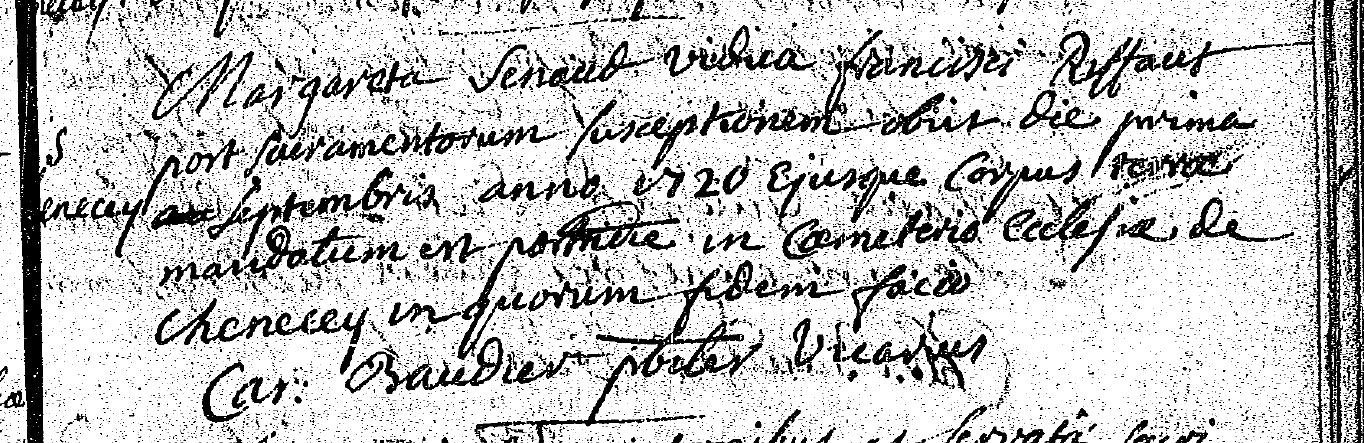 Margareta Senaud vidua francisci Riffaut
post sacramentorum susceptionem obiit die prima
septembris anno 1720 Ejusque Corpus terræ
mandatum est postridie in Cœmeterio Ecclesiæ de
chenecey in quorum fidem facio
Car: Baudier pbiter Vicarius
enecey